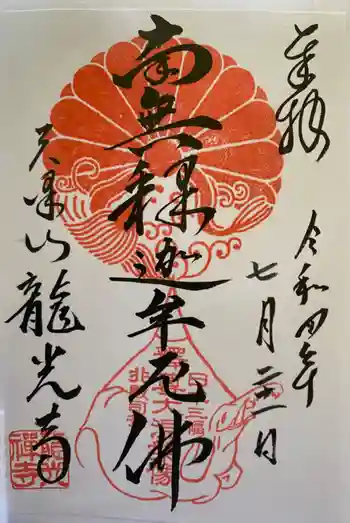 奉拝
令和四年
七月二十一日
南無釋迦牟尼佛
天澤山龍光寺
龍光禅寺